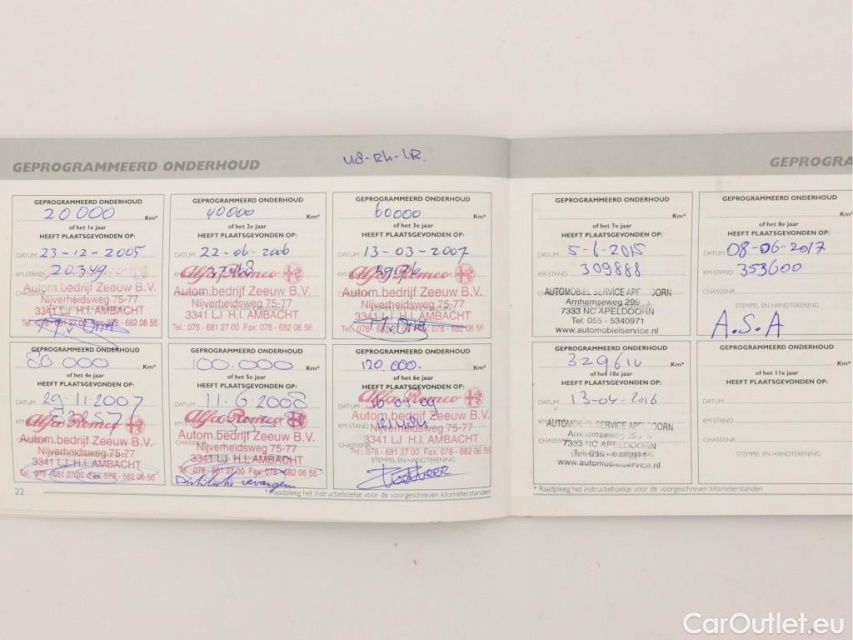 GEPROGRAMMEERD ONDERHOUD
U8-RH-LR.
GEPROGRA
GEPROGRAMMEERD ONDERHOUD
20000 Km*
of het 1e jaar
HEEFT PLAATSGEVONDEN OP:
DATUM 23-12-2005
KM.STAND 20349
Alfa Romeo
Autom.bedrijf Zeeuw B.V.
Nijverheidsweg 75-77
3341 LJ H.I. AMBACHT
Tel.: 078 - 681 27 00 Fax: 078 - 682 06 56
GEPROGRAMMEERD ONDERHOUD
40000 Km*
of het 2e jaar
HEEFT PLAATSGEVONDEN OP:
DATUM 22-06-2006
Alfa Romeo
Autom.bedrijf Zeeuw B.V.
Nijverheidsweg 75-77
3341 LJ H.I. AMBACHT
Tel.: 078 - 681 27 00 Fax: 078 - 682 06 56
GEPROGRAMMEERD ONDERHOUD
60000 Km*
of het 3e jaar
HEEFT PLAATSGEVONDEN OP:
DATUM 13-03-2007
Alfa Romeo
Autom.bedrijf Zeeuw B.V.
Nijverheidsweg 75-77
3341 LJ H.I. AMBACHT
Tel.: 078 - 681 27 00 Fax: 078 - 682 06 56
GEPROGRAMMEERD ONDERHOUD
of het 7e jaar
HEEFT PLAATSGEVONDEN OP:
DATUM 5-6-2015
KM.STAND 309888
AUTOMOBIEL SERVICE APELDOORN
Arnhemseweg 295
7333 NC APELDOORN
Tel: 055 - 5340971
www.automobielservice.nl
GEPROGRAMMEERD ONDERHOUD
of het 8e jaar
HEEFT PLAATSGEVONDEN OP:
DATUM 08-06-2017
KM.STAND 353600
CHASSISNR.
STEMPEL EN HANDTEKENING
A.S.A
GEPROGRAMMEERD ONDERHOUD
80.000 Km*
of het 4e jaar
HEEFT PLAATSGEVONDEN OP:
DATUM 29-11-2007
Alfa Romeo
Autom.bedrijf Zeeuw B.V.
Nijverheidsweg 75-77
3341 LJ H.I. AMBACHT
Tel.: 078 - 681 27 00 Fax: 078 - 682 06 56
GEPROGRAMMEERD ONDERHOUD
100.000 Km*
of het 5e jaar
HEEFT PLAATSGEVONDEN OP:
DATUM 11-6-2008
Alfa Romeo
Autom.bedrijf Zeeuw B.V.
Nijverheidsweg 75-77
3341 LJ H.I. AMBACHT
Tel.: 078 - 681 27 00 Fax: 078 - 682 06 56
GEPROGRAMMEERD ONDERHOUD
120.000. Km*
of het 6e jaar
HEEFT PLAATSGEVONDEN OP:
DATUM
Alfa Romeo
Autom.bedrijf Zeeuw B.V.
Nijverheidsweg 75-77
3341 LJ H.I. AMBACHT
Tel.: 078 - 681 27 00 Fax: 078 - 682 06 56
GEPROGRAMMEERD ONDERHOUD
329610 Km*
of het 10e jaar
HEEFT PLAATSGEVONDEN OP:
DATUM 13-04-2016
AUTOMOBIEL SERVICE APELDOORN
Arnhemseweg
7333 NC APELDOORN
www.automobielservice.nl
GEPROGRAMMEERD ONDERHOUD
of het 11e jaar
HEEFT PLAATSGEVONDEN OP:
DATUM
KM.STAND
CHASSISNR.
STEMPEL EN HANDTEKENING
22
* Raadpleeg het instructieboekje voor de voorgeschreven kilometerstanden
* Raadpleeg het instructieboekje voor de voorgeschreven kilometerstanden
CarOutlet.eu